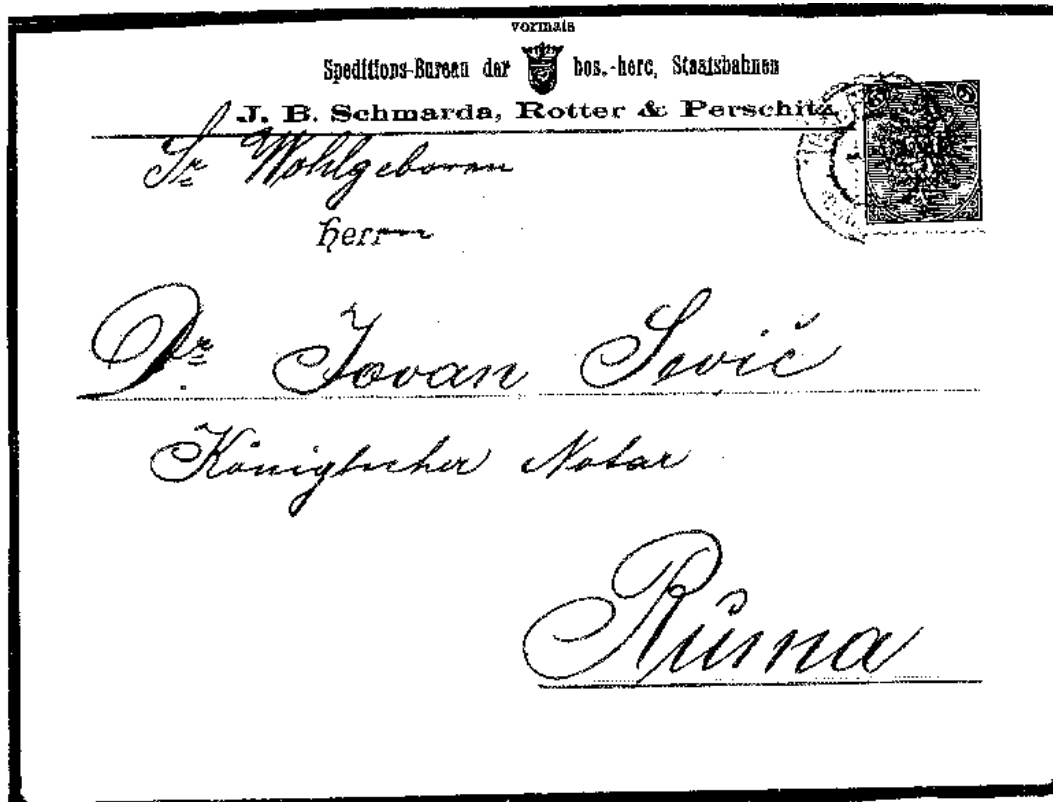 vormals
Speditions-Bureau der bos.-herc. Staatsbahnen
J. B. Schmarda, Rotter & Perschitz
Sr Wohlgeboren
Herrn
Dr Jovan Sević
Königlicher Notar
Ruma